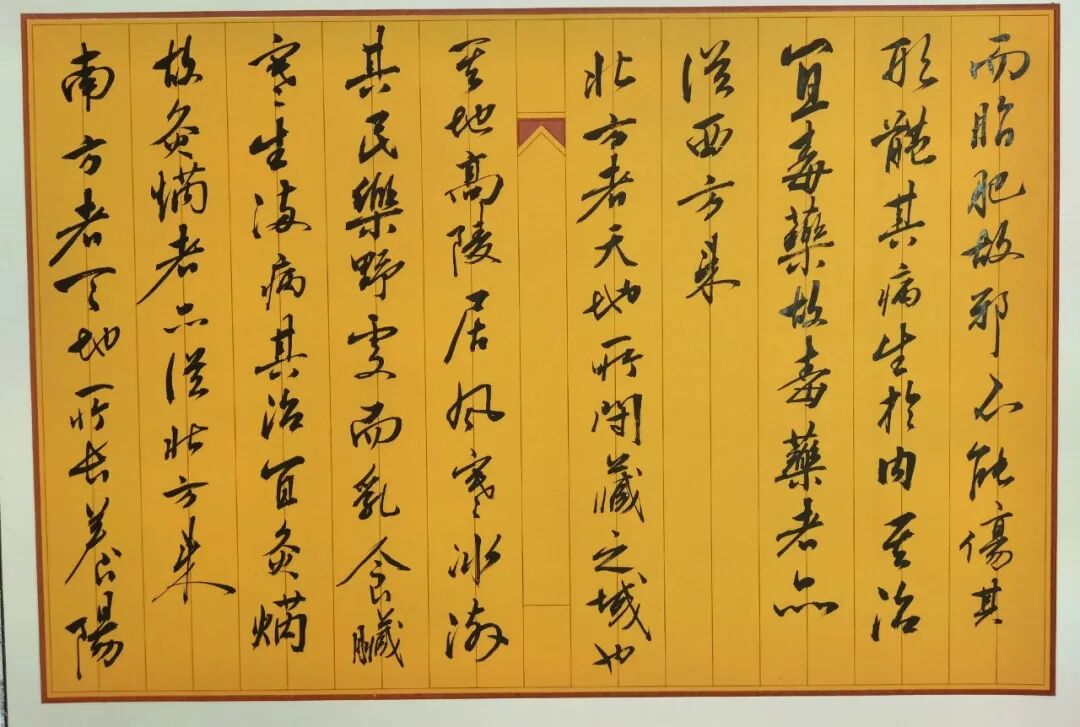 而脂肥故邪不能傷其
形體其病生於内其治
宜毒藥故毒藥者亦
從西方来
北方者天地所閉藏之域也
其地高陵居風寒冰冽
其民樂野處而乳食臓
寒生滿病其治宜灸焫
故灸焫者亦從北方来
南方者天地所長養陽